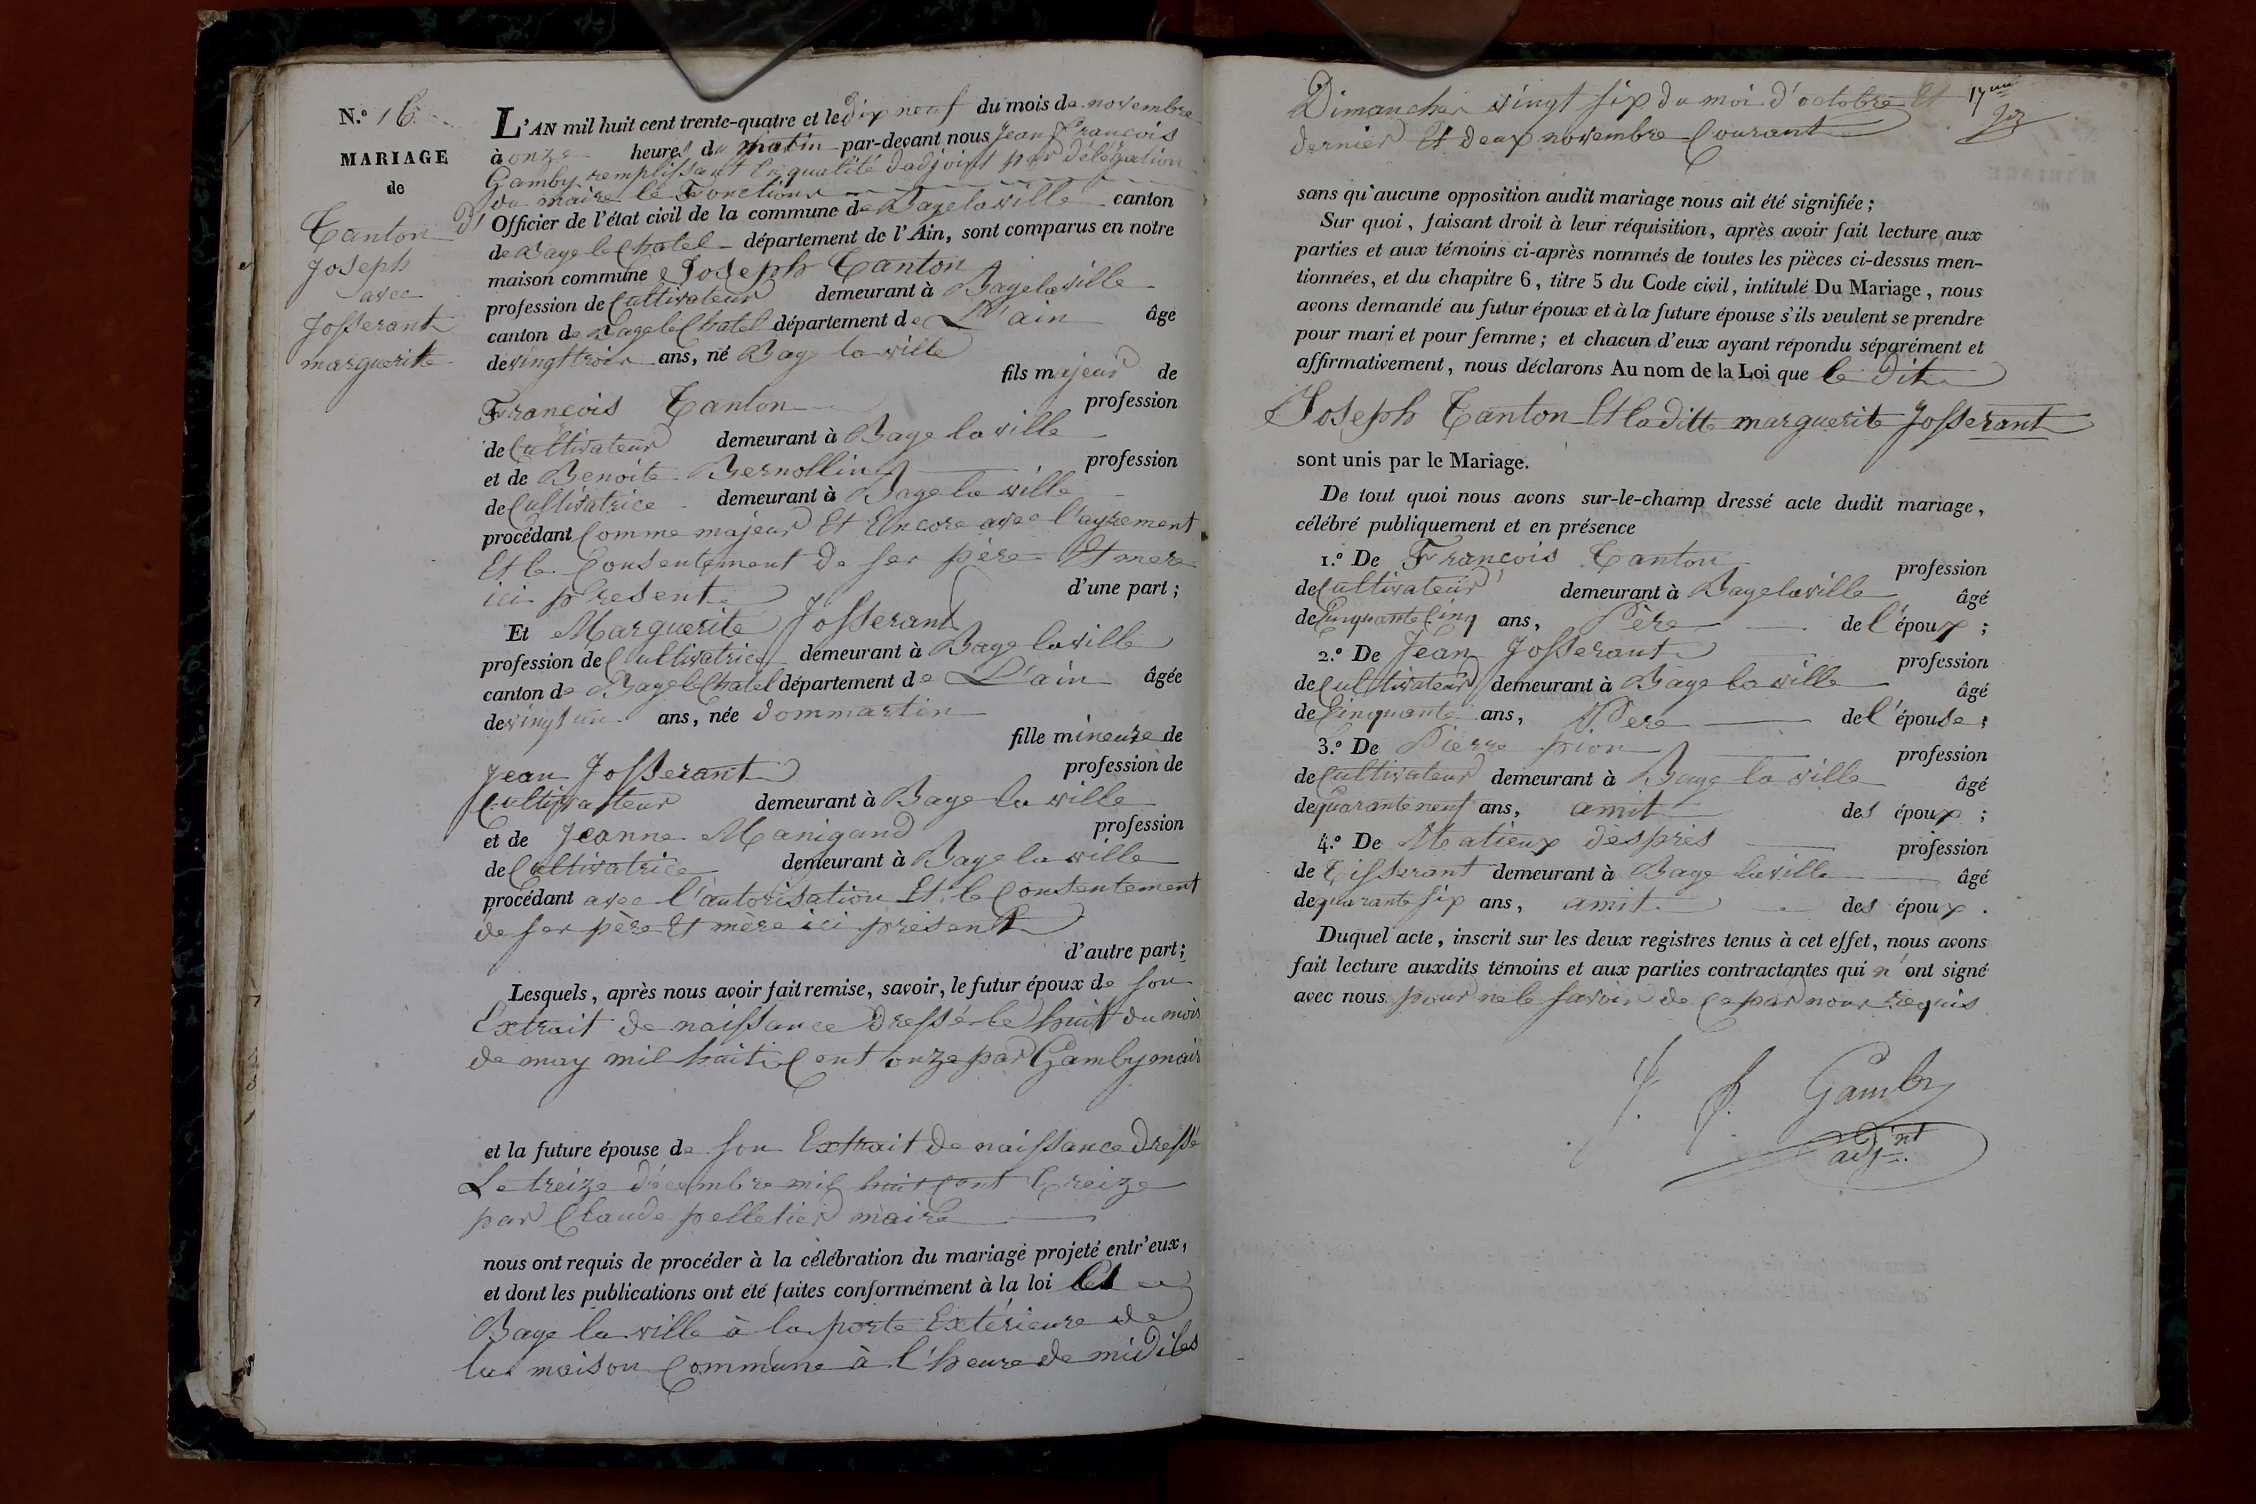 N.º 16
MARIAGE
de
Tanton
Joseph
avec
Josserant
marguerite
L'AN mil huit cent trente-quatre et le dix neuf du mois de novembre
à onze heures du matin par-devant nous Jean François
Gamby remplissant en qualité d'adjoint par délégation
du maire le Fonctions d'
Officier de l'état civil de la commune de Bage la ville canton
de Bage le Chatel département de l'Ain, sont comparus en notre
maison commune Joseph Tanton
profession de Cultivateur demeurant à Bage la ville
canton de Bage le Chatel département de L'ain âge
de vingt trois ans, né Bage la ville
fils majeur de
François Tanton profession
de Cultivateur demeurant à Bage la ville
et de Benoite Bernollin profession
de Cultivatrice demeurant à Bage la ville
procédant Comme majeur Et Encore avec l'agrement
Et le Consentement de ses père Et mere
ici présent d'une part ;
Et Marguerite Josserant
profession de Cultivatrice demeurant à Bage la ville
canton de Bage le Chatel département de L'ain âgée
de vingt un ans, née dommartin
fille mineure de
Jean Josserant profession de
Cultivateur demeurant à Bage la ville
et de Jeanne Manigand profession
de Cultivatrice demeurant à Bage la ville
procédant avec l'autorisation Et le Consentement
de ses père Et mère ici présent
d'autre part ;
Lesquels, après nous avoir fait remise, savoir, le futur époux de son
Extrait de naissance Dressé le huit du mois
de may mil huit Cent onze par Gamby mair
et la future épouse de son Extrait de naissance Dressé
Le treize décembre mil huit Cent treize
par Claude pelletier maire
nous ont requis de procéder à la célébration du mariage projeté entr'eux,
et dont les publications ont été faites conformément à la loi
Bage la ville à la porte Extérieure de
la maison Commune à l'heure de midi les
Dimanches vingt six du moi d'octobre Et
dernier Et deux novembre Courant
sans qu'aucune opposition audit mariage nous ait été signifiée ;
Sur quoi, faisant droit à leur réquisition, après avoir fait lecture aux
parties et aux témoins ci-après nommés de toutes les pièces ci-dessus men-
tionnées, et du chapitre 6, titre 5 du Code civil, intitulé Du Mariage, nous
avons demandé au futur époux et à la future épouse s'ils veulent se prendre
pour mari et pour femme ; et chacun d'eux ayant répondu séparément et
affirmativement, nous déclarons Au nom de la Loi que le dit
Joseph Tanton Et la ditte marguerite Josserant
sont unis par le Mariage.
De tout quoi nous avons sur-le-champ dressé acte dudit mariage,
célébré publiquement et en présence
1.º De François Tanton profession
de Cultivateur demeurant à Bage la ville âgé
de Cinquante Cinq ans, Père de l'époux ;
2.º De Jean Josserant profession
de Cultivateur demeurant à Bage la ville âgé
de Cinquante ans, Père de l'épouse ;
3.º De Pierre pion profession
de Cultivateur demeurant à Bage la ville âgé
de quarante neuf ans, amit des époux ;
4.º De Matieux desprès profession
de Tisserant demeurant à Bage la ville âgé
de quarante six ans, amit des époux .
Duquel acte, inscrit sur les deux registres tenus à cet effet, nous avons
fait lecture auxdits témoins et aux parties contractantes qui n'ont signé
avec nous pour ne le savoir de ce par nous requis
J. f. Gamby
adjint